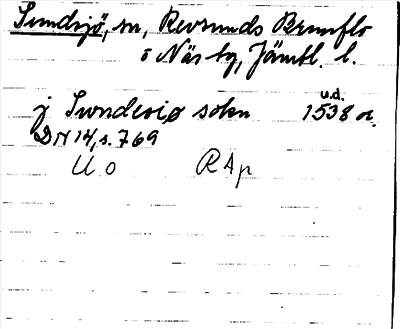 Sundsjö, sn, Revsunds Brunflo
o Näs tg, Jämtl. l.
u.d.
j Sundesiø sokn 1538 or.
DN 14, s. 769
U.o RAp